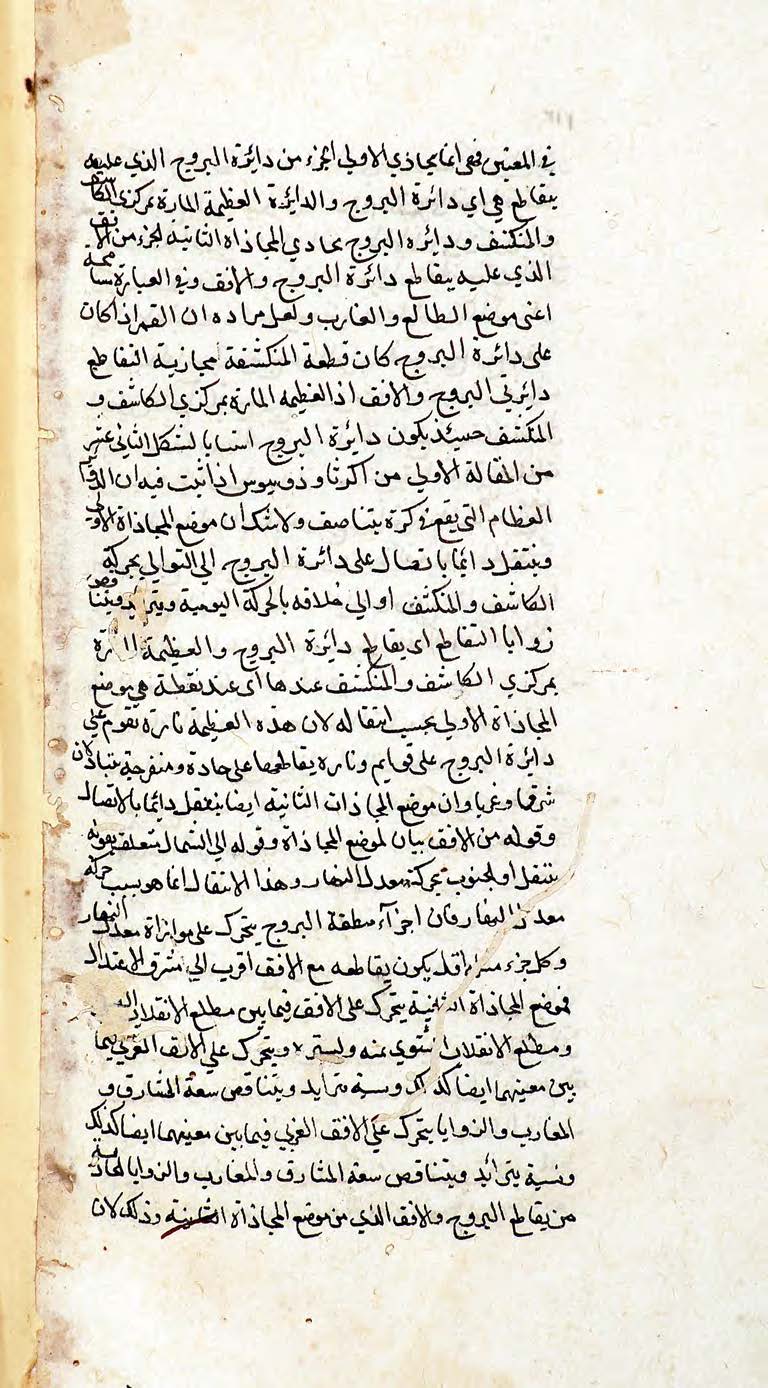 في المعنيين فهي انما يحاذي الاولي الجزء من دائرة البروج الذي عليه
يتقاطع هي اي دائرة البروج والدائرة العظيمة المارة بمركزي الكاسف
والمنكسف ودايره البروج يحاذي المحاذاة الثانيه لجزء من الافق
الذي عليه يتقاطع دائرة البروج والافق وفي العبارة مسامحة
اعني موضع الطالع والغارب ولعل مراده ان القمر اذا كان
على دائرة البروج كان قطعة المنكشفة محازية التقاطع
دايرتي البروج والافق اذ العظيمه المارة بمركزي الكاشف و
المنكسف حينئذ يكون دائرة البروج بالشكل الثاني عشر
من المقالة الاولي من اكر ثاوذوسيوس اذ اثبت فيه ان الدوائر
العظام التي يقع في كرة يتناصف ولا شك ان موضع المحاذاة الاولي
وينتقل دائما باتصال على دائرة البروج الي التوالي بحركة
الكاشف والمنكشف او الي خلافه بالحركة اليومية ويتزايد ويتناقص
زوايا التقاطع اي يقاطع دايرة البروج والعظيمة المارة
بمركزي الكاشف والمنكشف عندها اي عند نقطة هي موضع
المحاذاة الاولي بحسب انتقاله لان هذه العظيمة تارة تقوم علي
دايرة البروج على قوايم وتارة يقاطعها على حادة ومنفرجة يتبادلان
شرقا وغربا وان موضع المحاذات الثانية ايضا ينتقل دائما بالاتصال
وقوله من الافق بيان لموضع المحاذاة وقوله الي الشمال متعلق بقوله
ينتقل او الجنوب بحركة معدل النهار وهذا الانتقال انما هو بسبب حركة
معدل النهار فان اجزآء منطقة البروج يتحرك على موازاة معدل النهار
وكل جزء ميله اقل يكون يقاطعه مع الافق اقرب الي مشرق الاعتدال
فموضع المحاذاة الثانية يتحرك على الافق فيما بين مطلع الانقلاب
ومطلع الانقلاب الشتوي منه ويتحرك علي الافق الغربي فيما
بين مغيبهما ايضا كذلك وبسببه يتزايد ويتناقص سعة المشارق و
المغارب والزوايا يتحرك علي الافق الغربي فيما بين مغيبهما ايضا كذلك
وبسببه يتزائد ويتناقص سعة المشارق والمغارب والزوايا الحادثة
من يقاطع البروج والافق الذي من موضع المحاذاة الثانية وذلك لان